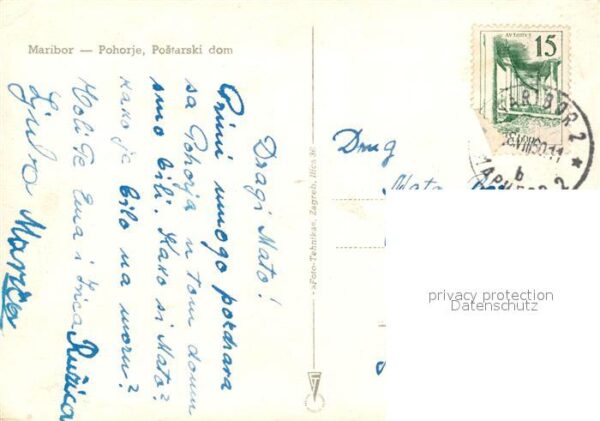 Maribor — Pohorje, Poštarski dom
Dragi Mato!
Primi mnogo pozdrava
sa Pohorja u tom domu
smo bili. Kako si Mato?
kako je bilo na moru?
Voli Te Ema i Ivica Ružica
Ljuba Marica
»Foto-Tehnika«, Zagreb, Ilica
15
MARIBOR 2
b
Drug
Mato
privacy protection
Datenschutz